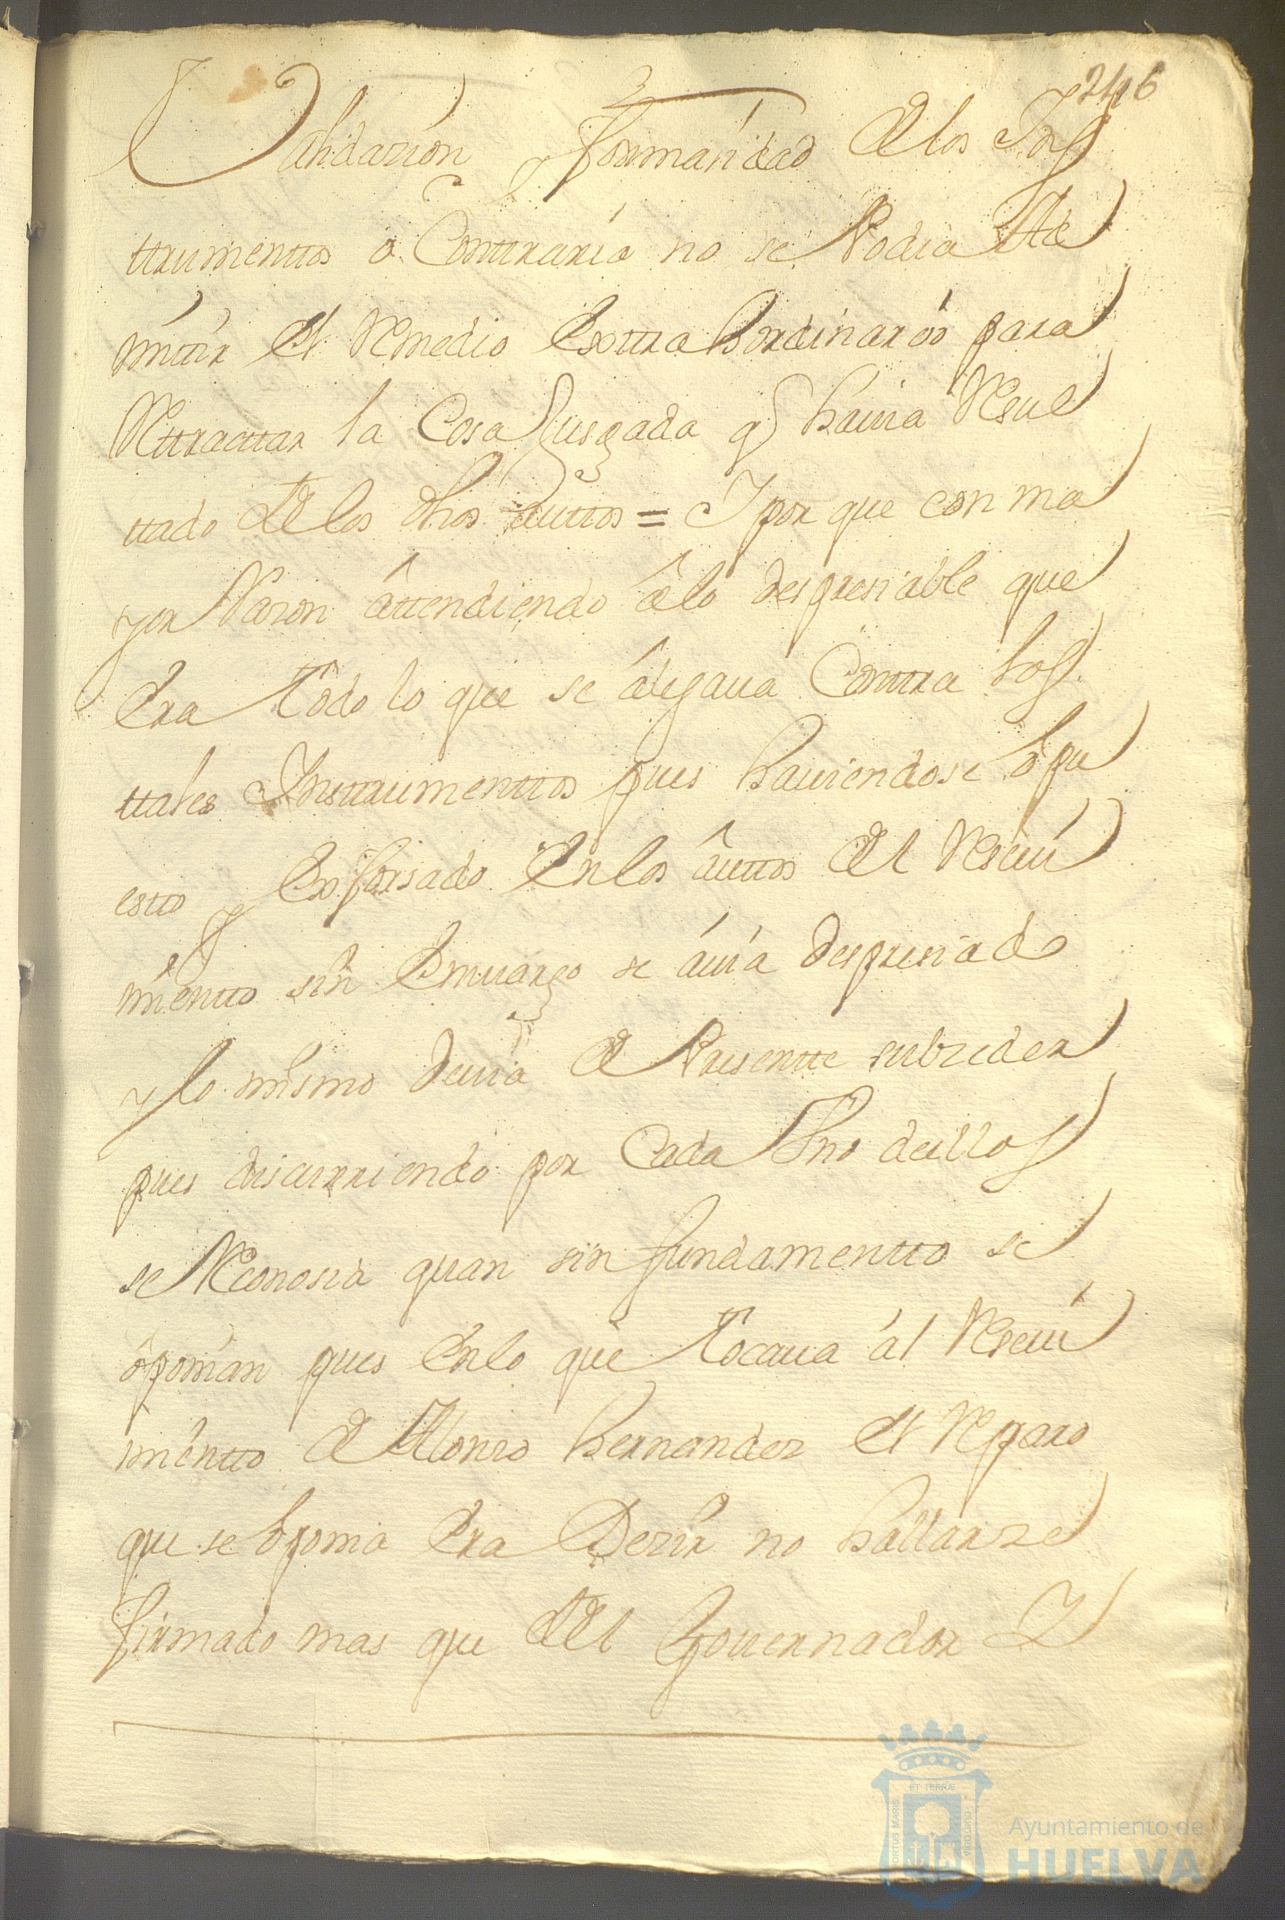 246
Validazion y formanidad de los Ins
ttrumenttos o Conttrario no se Podia Ad
mittir el Remedio Exttrahordinaróo para
Rettracttar la Cosa Jusgada q havia Resul
ttado de los dhos Auttos = Y por que con ma
yor Razon attendiendo a lo despresiable que
Era ttodo lo que se alegaua Conttra los
ttales Insttrumenttos pues hauiendose opu
estto y Exforsado En los auttos del Resiui
mientto sin Emuargo se auia despresiado
y lo mismo deuia de Presentte subzeder
pues discurriendo por Cada Vno dellos
se Reconosia quan sin fundamentto se
oponian pues En lo que ttocaua al Reseui
mientto de Alonso hernandez el Reparo
que se oponia Era Dezir no hallarze
firmado mas que del Gouernador Y
ET TERRÆ
PORTUS MARIS
CUSTODIA
Ayuntamiento de
HUELVA